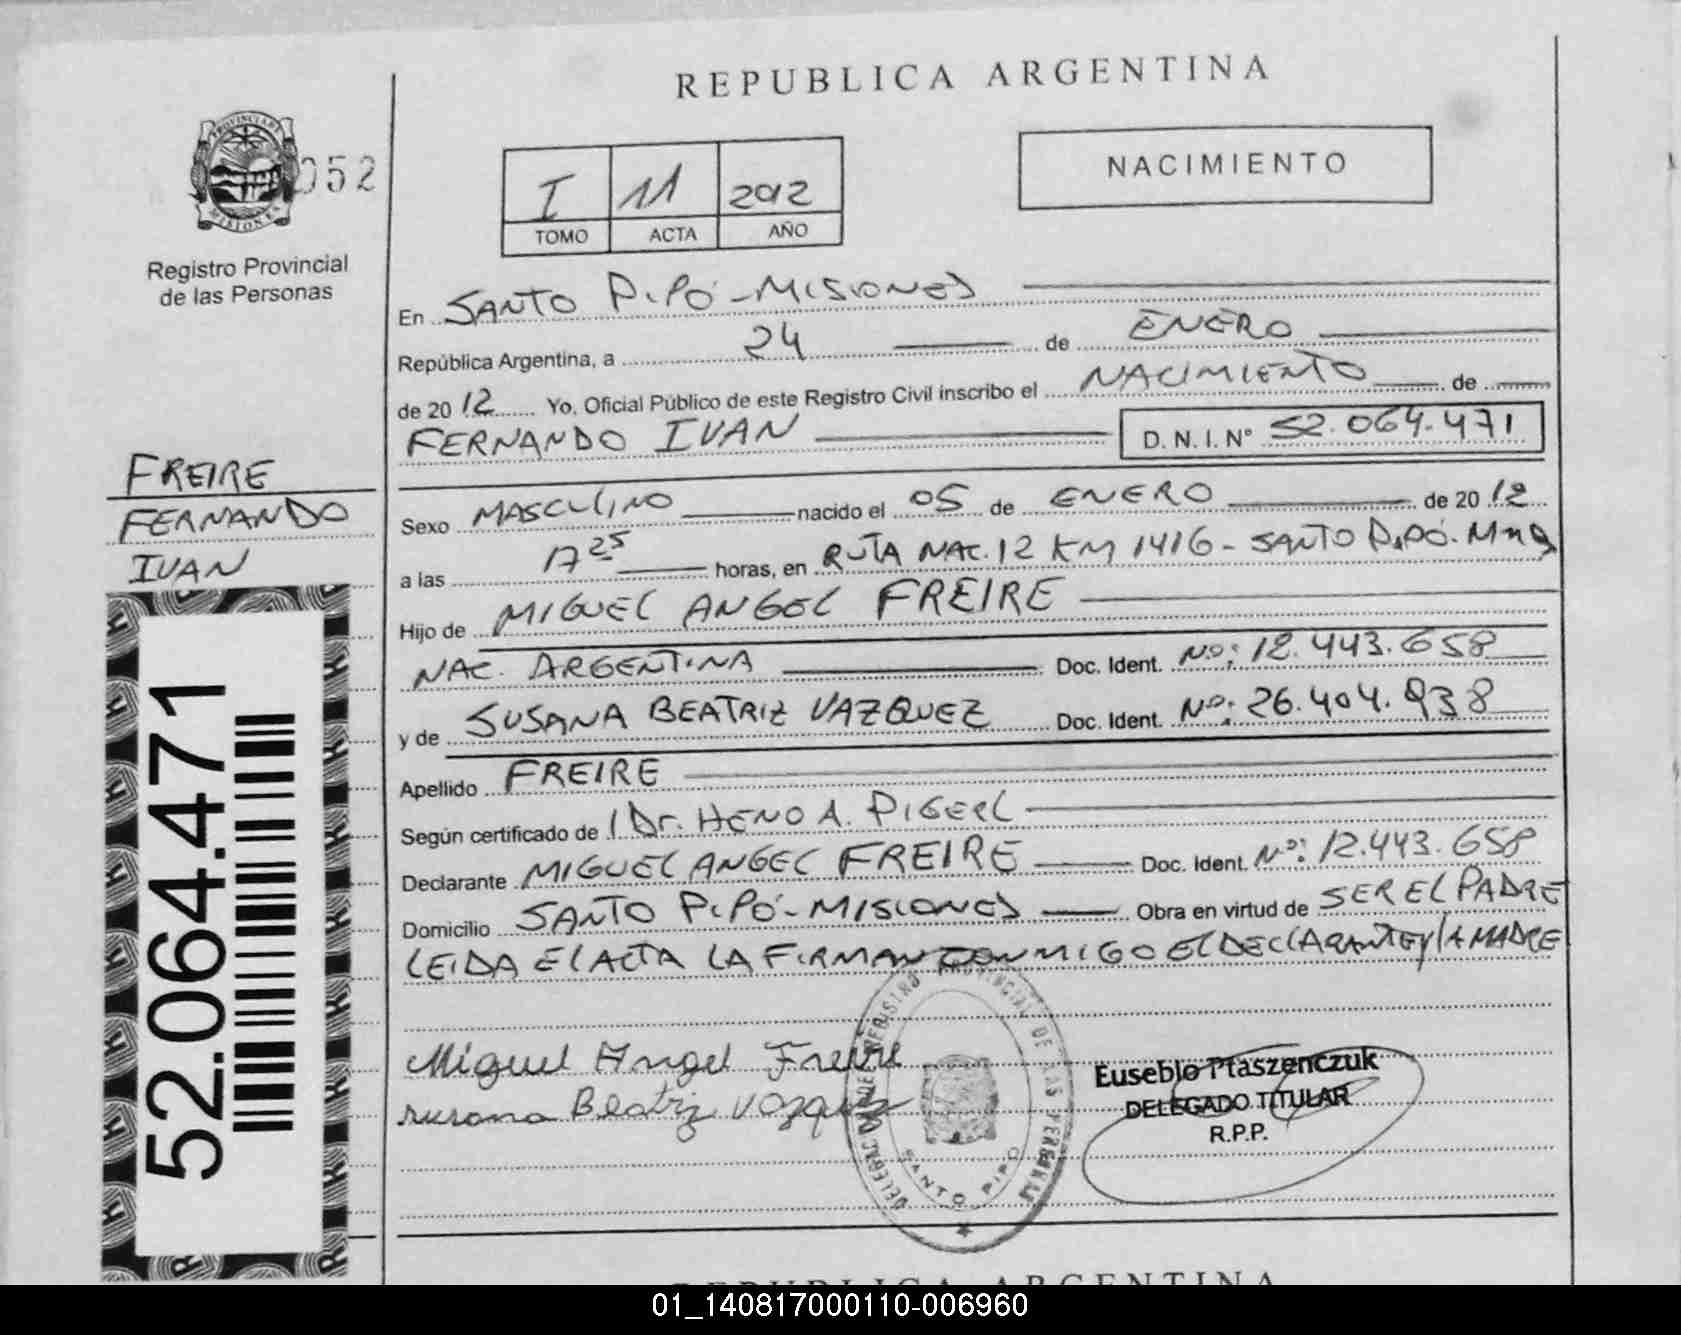 REPUBLICA ARGENTINA
PROVINCIA DE MISIONES
052
Registro Provincial
de las Personas
I 11 2012
TOMO ACTA AÑO
NACIMIENTO
En SANTO PIPÓ - MISIONES
República Argentina, a 24 de ENERO
de 2012 Yo, Oficial Público de este Registro Civil inscribo el NACIMIENTO de
FERNANDO IVAN D.N.I. Nº 52.064.471
FREIRE
FERNANDO
IVAN
Sexo MASCULINO nacido el 05 de ENERO de 2012
a las 17 25 horas, en RUTA NAC. 12 KM 1416 - SANTO PIPÓ. Mnes
Hijo de MIGUEL ANGEL FREIRE
NAC. ARGENTINA Doc. Ident. Nº: 12.443.658
y de SUSANA BEATRIZ VAZQUEZ Doc. Ident. Nº: 26.404.938
Apellido FREIRE
Según certificado de Dr. HENO A. PIGERL
Declarante MIGUEL ANGEL FREIRE Doc. Ident. Nº: 12.443.658
Domicilio SANTO PIPÓ - MISIONES Obra en virtud de SER EL PADRE
LEIDA EL ACTA LA FIRMAN CONMIGO EL DECLARANTE y LA MADRE
Miguel Angel Freire
susana Beatriz Vazquez
DELEGACION DE REGISTRO PROVINCIAL DE LAS PERSONAS
SANTO PIPO
Eusebio Ptaszenczuk
DELEGADO TITULAR
R.P.P.
52.064.471
REPUBLICA ARGENTINA
01_140817000110-006960